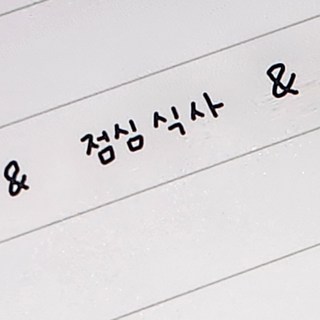 & 점심 식사 &